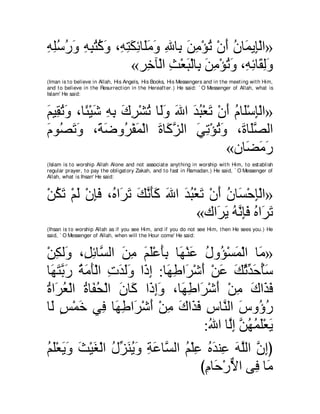 «الْإِيمَانُ أَنْ تُؤْمِنَ بِاللهِ، وَمَلَائِكَتِهِ، وَكُتُبِهِ وَرُسُلِهِ،
وَلِقَائِهِ، وَتُؤْمِنَ بِالْبَعْثِ الْآخِرِ»
(Iman is to believe in Allah, His Angels, His Books, His Messengers and in the meeting with Him,
and to believe in the Resurrection in the Hereafter.) He said: `O Messenger of Allah, what is
Islam' He said:
«الْإِسْلَامُ أَنْ تَعْبُدَ اللهَ وَلَا تُشْرِكَ بِهِ شَيْئًا، وَتُقِيمَ
الصَّلَاةَ، وَتُؤْتِيَ الزَّكَاةَ الْمَفْرُوضَةَ، وَتَصُومَ
رَمَضَانَ»
(Islam is to worship Allah Alone and not associate anything in worship with Him, to establish
regular prayer, to pay the obligatory Zakah, and to fast in Ramadan.) He said, `O Messenger of
Allah, what is Ihsan' He said:
«الْإِحْسَانُ أَنْ تَعْبُدَ اللهَ كَأَنَّكَ تَرَاهُ، فَإِنْ لَمْ تَكُنْ
تَرَاهُ فَإِنَّهُ يَرَاكَ»
(Ihsan is to worship Allah as if you see Him, and if you do not see Him, then He sees you.) He
said, `O Messenger of Allah, when will the Hour come' He said:
«مَا الْمَسْؤُولُ عَنْهَا بِأَعْلَمَ مِنَ السَّائِلِ، وَلَكِنْ
سَأُحَدِّثُكَ عَنْ أَشْرَاطِهَا: إِذَا وَلَدَتِ الْأَمَةُ رَبَّتَهَا
فَذَاكَ مِنْ أَشْرَاطِهَا، وَإِذَا كَانَ الْحُفَاةُ الْعُرَاةُ
رُؤُوسَ النَّاسِ فَذَاكَ مِنْ أَشْرَاطِهَا فِي خَمْسٍ لَا
يَعْلَمُهُنَّ إِلَّا اللهُ:
(إِنَّ اللَّهَ عِندَهُ عِلْمُ السَّاعَةِ وَيُنَزِّلُ الْغَيْثَ وَيَعْلَمُ
مَا فِى الاٌّرْحَامِ)